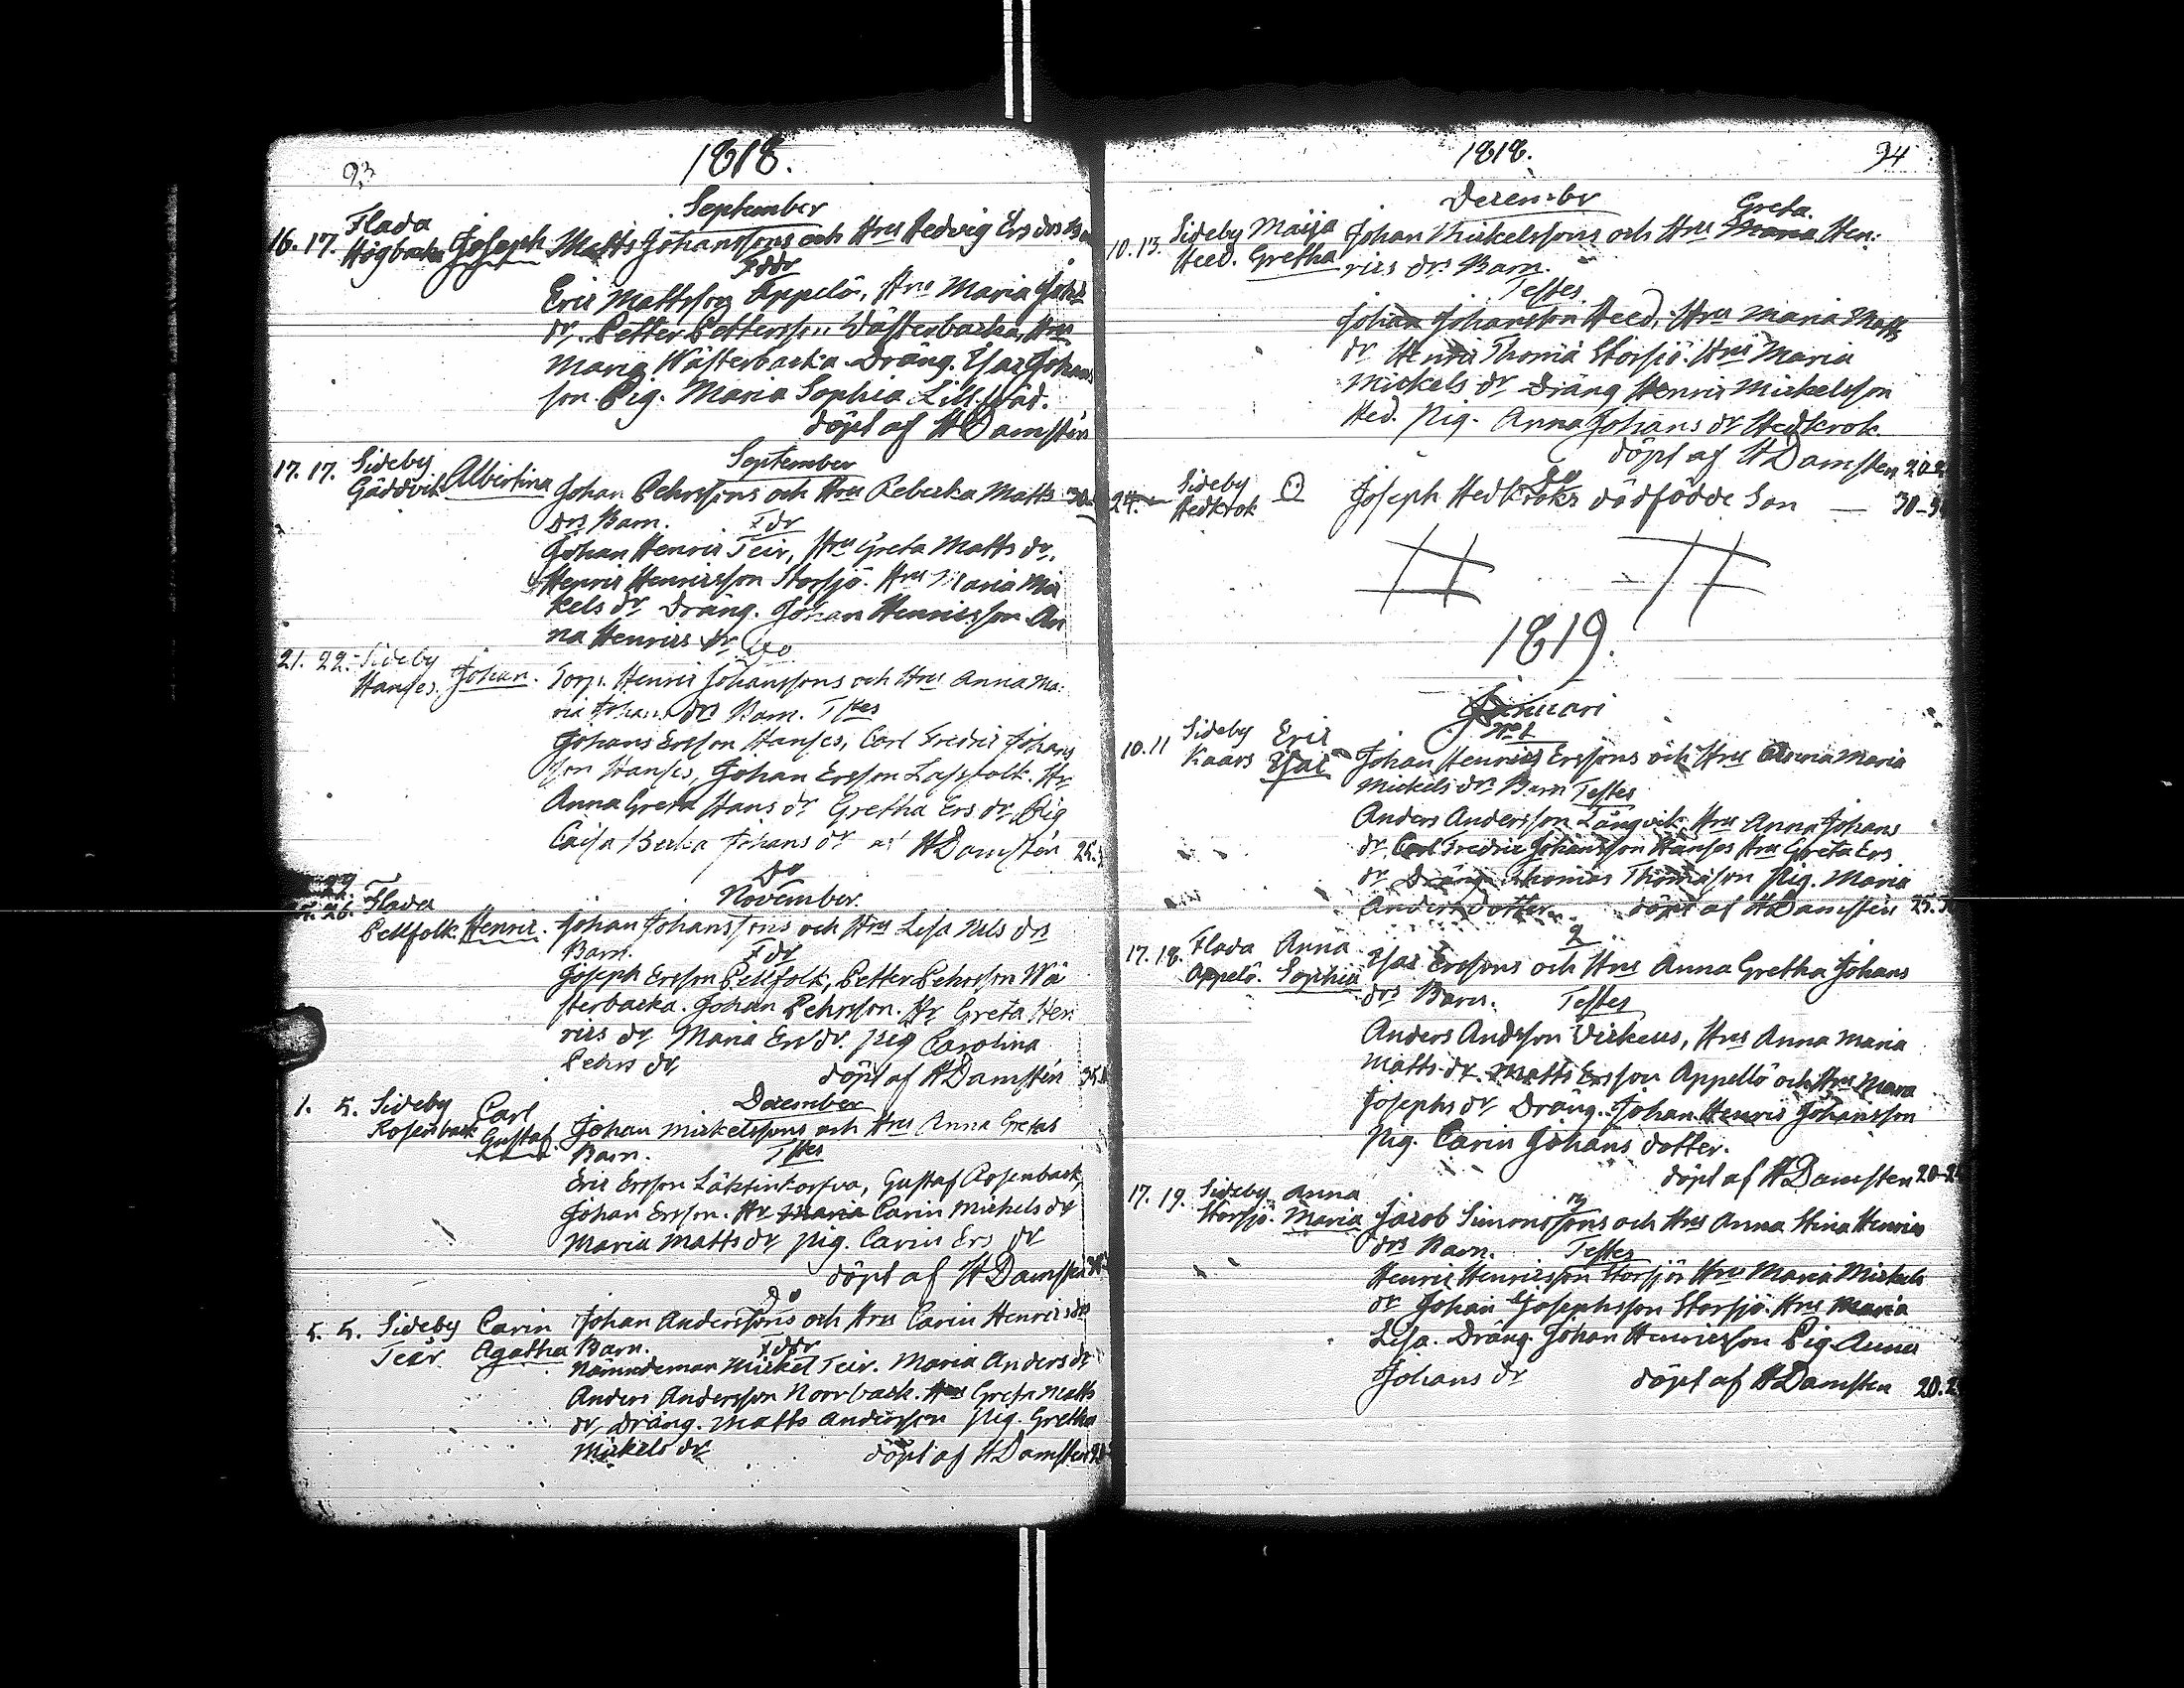 93
1818.
September
16. 17. Flada
Högbacka Joseph Matts Johanssons och Hrus Hedvig Ers drs Barn
Fddr
Eric Mattsson Appelö, Hru Maria Johs
dr. Petter Pettersson Wästerbacka, Hru
Maria Wästerbacka. Dräng. Isac Johans
son. Pig. Maria Sophia Lill
döpt af HDamstén
September
17. 17. Sideby
Gäddvik Albertina Johan Pehrssons och Hrus Rebecka Matts 30
drs Barn. Fdr
Johan Henric Teir, Hru Greta Matts dr.
Henric Henricsson Storsjö. Hru Maria Mi
kels dr Dräng. Johan Henricsson An
na Henrics dr
Do
21. 22. Sideby
Hanses. Johan. Torp. Henric Johanssons och Hrus Anna Ma:
ria Johans drs Barn. Tstes
Johans Ersson Hanses, Carl Fredric Johans
son Hanses, Johan Ersson Lassfolk. Hr
Anna Greta Hans dr Gretha Ers dr. Pig
Caisa Johans dr af HDamstén 25.
Do
November.
26. Flada
Pellfolk. Henric. Johan Johanssons och Hrus Lisa Nils drs
Barn. Fdr
Joseph Ersson Pellfolk, Petter Pehrsson Wä
sterbacka. Johan Pehrsson. Hr Greta Hen
rics dr Maria Ers dr. Pig Carolina
Pehrs dr döpt af HDamstén 35.
December
1. 5. Sideby
Rosenback Carl
Gustaf Johan Mickelssons och Hrus Anna Gretas
Barn. Tstes
Eric Ersson Gustaf Rosenback,
Johan Ersson. Hr Maria Carin Mickels dr
Maria Matts dr Pig. Carin Ers dr
döpt af HDamsten
Do
5. 5. Sideby Carin Johan Anderssons och Hrus Carin Henrics drs
Teir Agatha Barn. Fddr
Nämndeman Mickel Teir. Maria Anders dr
Anders Andersson Norrback. Hru Greta Matts
dr, Dräng. Matts Andersson Pig. Gretha
Mickels dr döpt af HDamsten
1818. 94
December
Greta
10. 13. Sideby Maija Johan Mickelssons och Hrus Maria Hen:
Heed. Gretha rics drs Barn.
Testes
Johan Johansson Heed, Hru Maria Matts
dr Henric Thomä Storsjö. Hru Maria
Mickels dr Dräng Henric Mickelsson
Hed. Pig. Anna Johans dr Hedkrok.
döpt af HDamsten 20.2
Do
24. Sideby
Hedkrok Joseph Hedkroks dödfödde Son — 30-3
1819.
Januari
No 1
10. 11 Sideby Eric
Kaars Isac Johan Henrics Erssons och Hrus Anna Maria
Mickels drs Barn Testes
Anders Andersson Långvik, Hru Anna Johans
dr. Carl Fredric Johansson Hanses Hru Greta Ers
dr Dräng Thomas Thomasson Pig. Maria
Anders dotter. döpt af HDamsten 25.3
2
17. 18. Flada Anna
Appelö. Sophia Isac Erssons och Hrus Anna Gretha Johans
drs Barn. Testes
Anders Andsson Hru Anna Maria
Matts dr. Matts Ersson Appellö och Hru Maria
Josephs dr, Dräng. Johan Henric Johansson
Pig. Carin Johans dotter.
döpt af HDamsten 20-2
3
17. 19. Sideby Anna
Storsjö. Maria Jacob Simonssons och Hrus Anna Stina Henrics
drs Barn. Testes
Henric Henricsson Storsjö Hru Maria Mickels
dr Johan Josephsson Storsjö. Hru Maria
Lisa. Dräng Johan Henricsson Pig Anna
Johans dr döpt af HDamsten 20.2